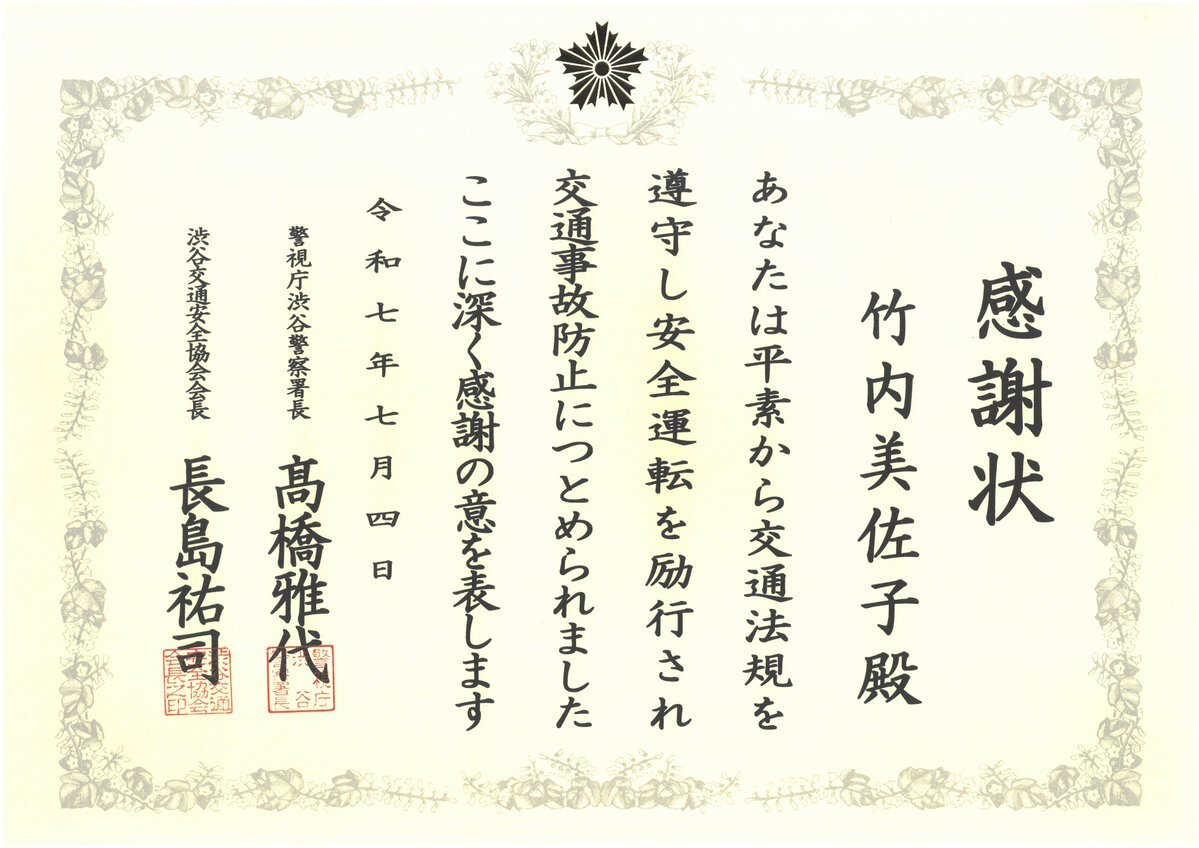 感謝状
竹内美佐子殿
あなたは平素から交通法規を
遵守し安全運転を励行され
交通事故防止につとめられました
ここに深く感謝の意を表します
令和七年七月四日
警視庁渋谷警察署長
髙橋雅代
警視庁渋谷警察署長
渋谷交通安全協会会長
長島祐司
渋谷交通安全協会会長之印